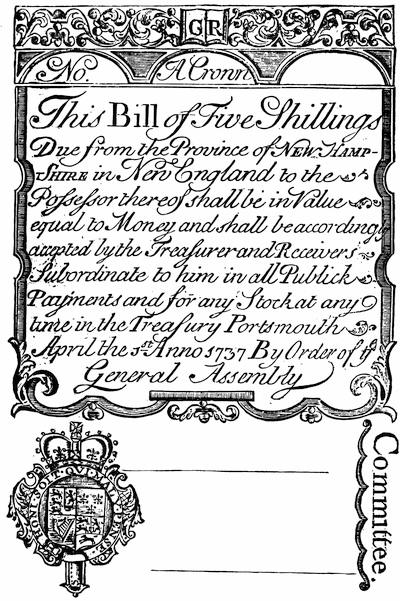 GR
No. A Crown
This Bill of Five Shillings
Due from the Province of NEW HAMP-
SHIRE in NEW ENGLAND to the
Possessor thereof shall be in Value
equal to Money and shall be accordingly
accepted by the Treasurer and Receivers
Subordinate to him in all Publick
Payments and for any Stock at any
time in the Treasury Portsmouth
April the 1st. Anno 1737 By Order of ye
General Assembly
HONI SOIT QUI MAL Y PENSE
Committee.